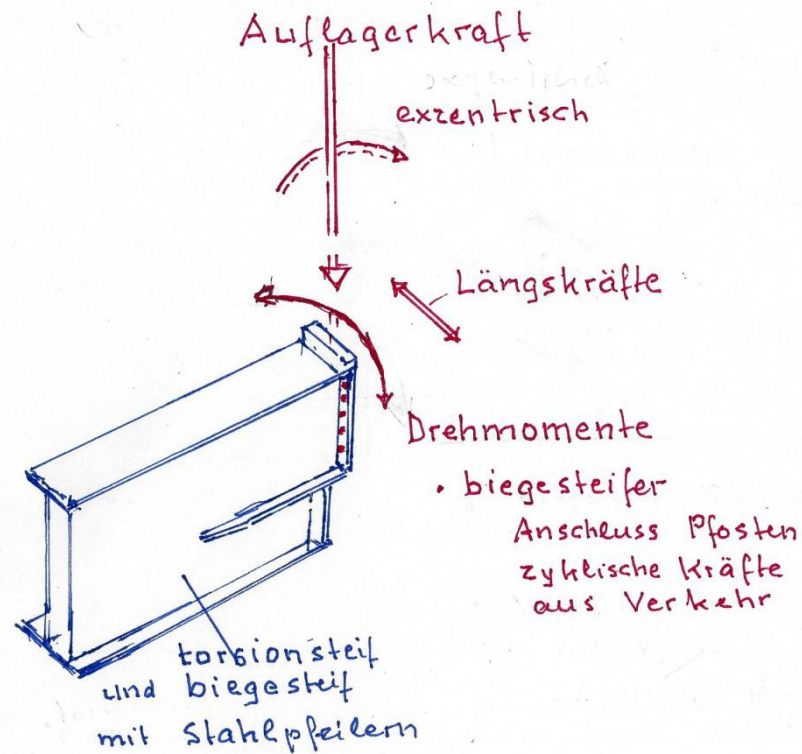 Auflagerkraft
exzentrisch
Längskräfte
Drehmomente
• biegesteifer
Anschluss Pfosten
zyklische Kräfte
aus Verkehr
torsionsteif
und biegesteif
mit Stahlpfeilern